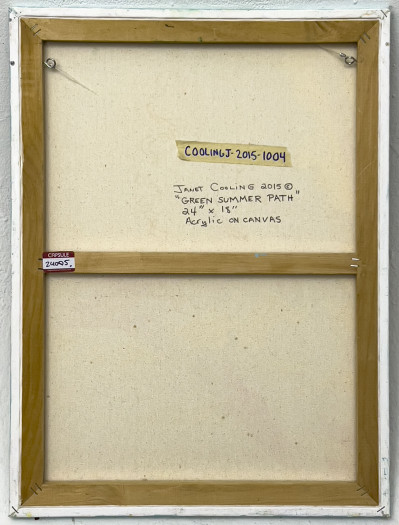 COOLINGJ-2015-1004
JANET COOLING 2015 ©
"GREEN SUMMER PATH"
24" x 18"
Acrylic ON CANVAS
CAPSULE